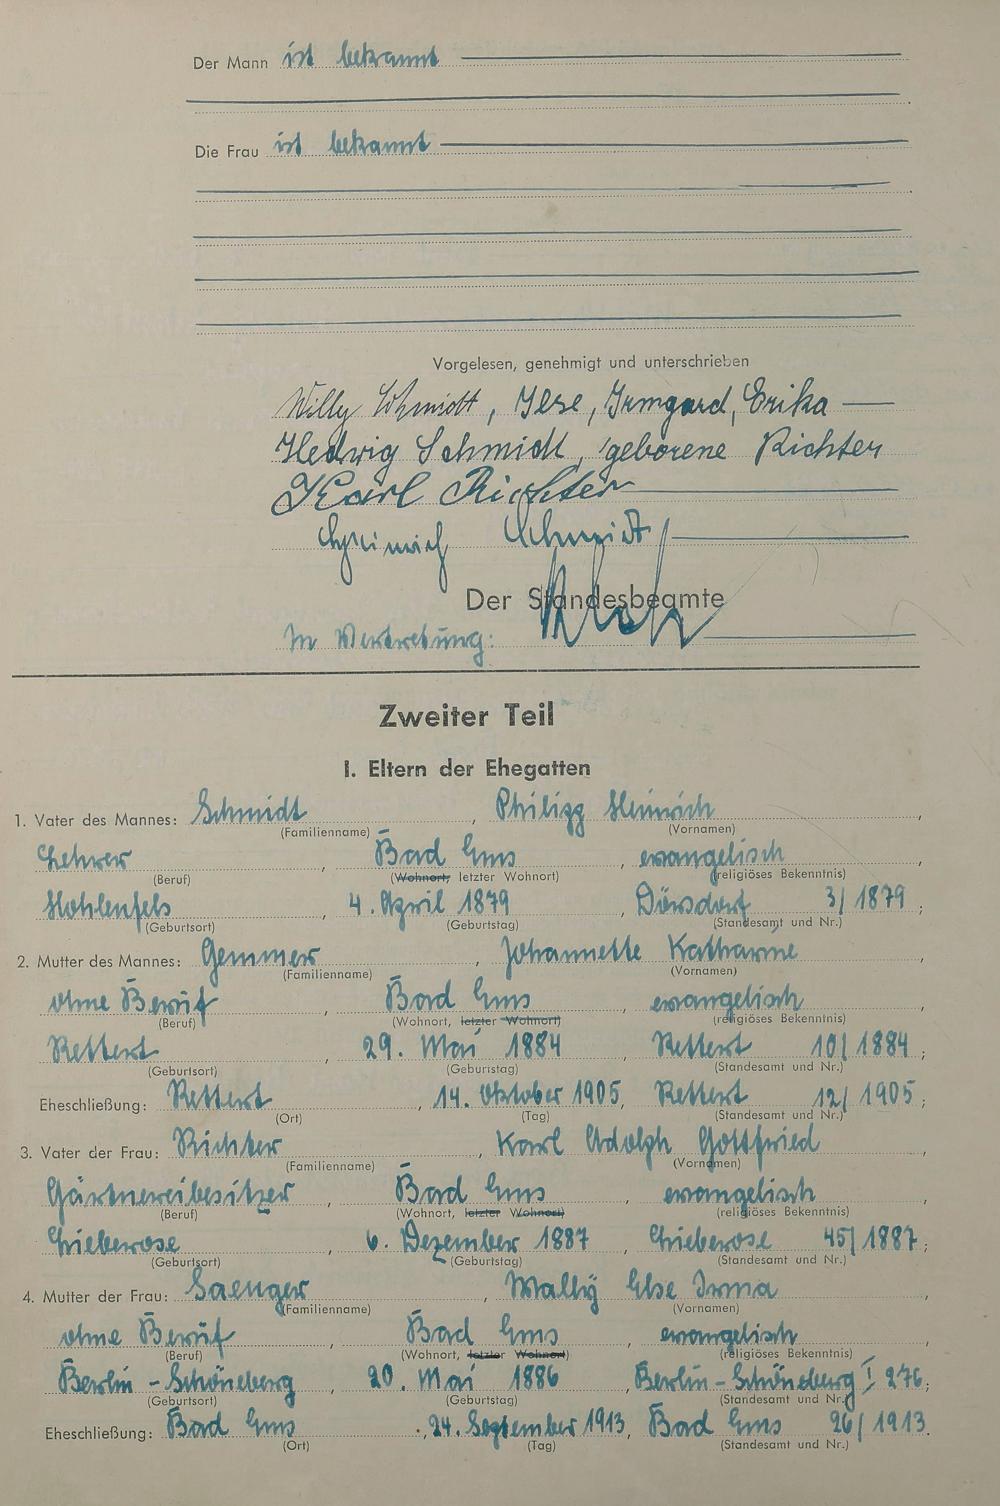 Der Mann ist bekannt
Die Frau ist bekannt
Vorgelesen, genehmigt und unterschrieben
Willy Schmidt, Ilse, Irmgard, Erika
Hedwig Schmidt, geborene Richter
Karl Richter
Heinrich Schmidt
Der Standesbeamte
In Vertretung:
Zweiter Teil
I. Eltern der Ehegatten
1. Vater des Mannes: Schmidt, Philipp Heinrich,
(Familienname) (Vornamen)
Lehrer, Bad Ems, evangelisch,
(Beruf) (Wohnort, letzter Wohnort) (religiöses Bekenntnis)
Hohlenfels, 4. April 1879, Dörsdorf 3/1879;
(Geburtsort) (Geburtstag) (Standesamt und Nr.)
2. Mutter des Mannes: Gemmer, Johannette Katharine,
(Familienname) (Vornamen)
ohne Beruf, Bad Ems, evangelisch,
(Beruf) (Wohnort, letzter Wohnort) (religiöses Bekenntnis)
Rettert, 29. Mai 1884, Rettert 10/1884;
(Geburtsort) (Geburtstag) (Standesamt und Nr.)
Eheschließung: Rettert, 14. Oktober 1905, Rettert 12/1905;
(Ort) (Tag) (Standesamt und Nr.)
3. Vater der Frau: Richter, Karl Adolph Gottfried,
(Familienname) (Vornamen)
Gärtnereibesitzer, Bad Ems, evangelisch,
(Beruf) (Wohnort, letzter Wohnort) (religiöses Bekenntnis)
Lieberose, 6. Dezember 1887, Lieberose 45/1887;
(Geburtsort) (Geburtstag) (Standesamt und Nr.)
4. Mutter der Frau: Saenger, Mally Else Irma,
(Familienname) (Vornamen)
ohne Beruf, Bad Ems, evangelisch,
(Beruf) (Wohnort, letzter Wohnort) (religiöses Bekenntnis)
Berlin-Schöneberg, 20. Mai 1886, Berlin-Schöneberg I 276;
(Geburtsort) (Geburtstag) (Standesamt und Nr.)
Eheschließung: Bad Ems, 24. September 1913, Bad Ems 26/1913.
(Ort) (Tag) (Standesamt und Nr.)